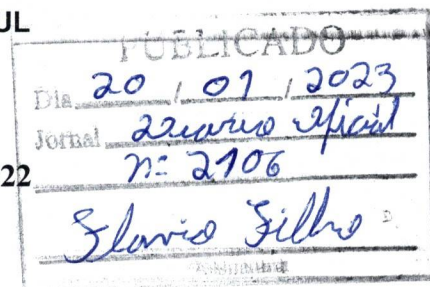 UL
PUBLICADO
Dia 20 / 01 / 2023
Jornal Diario Oficial
22 nº 2106
Flavio Filho